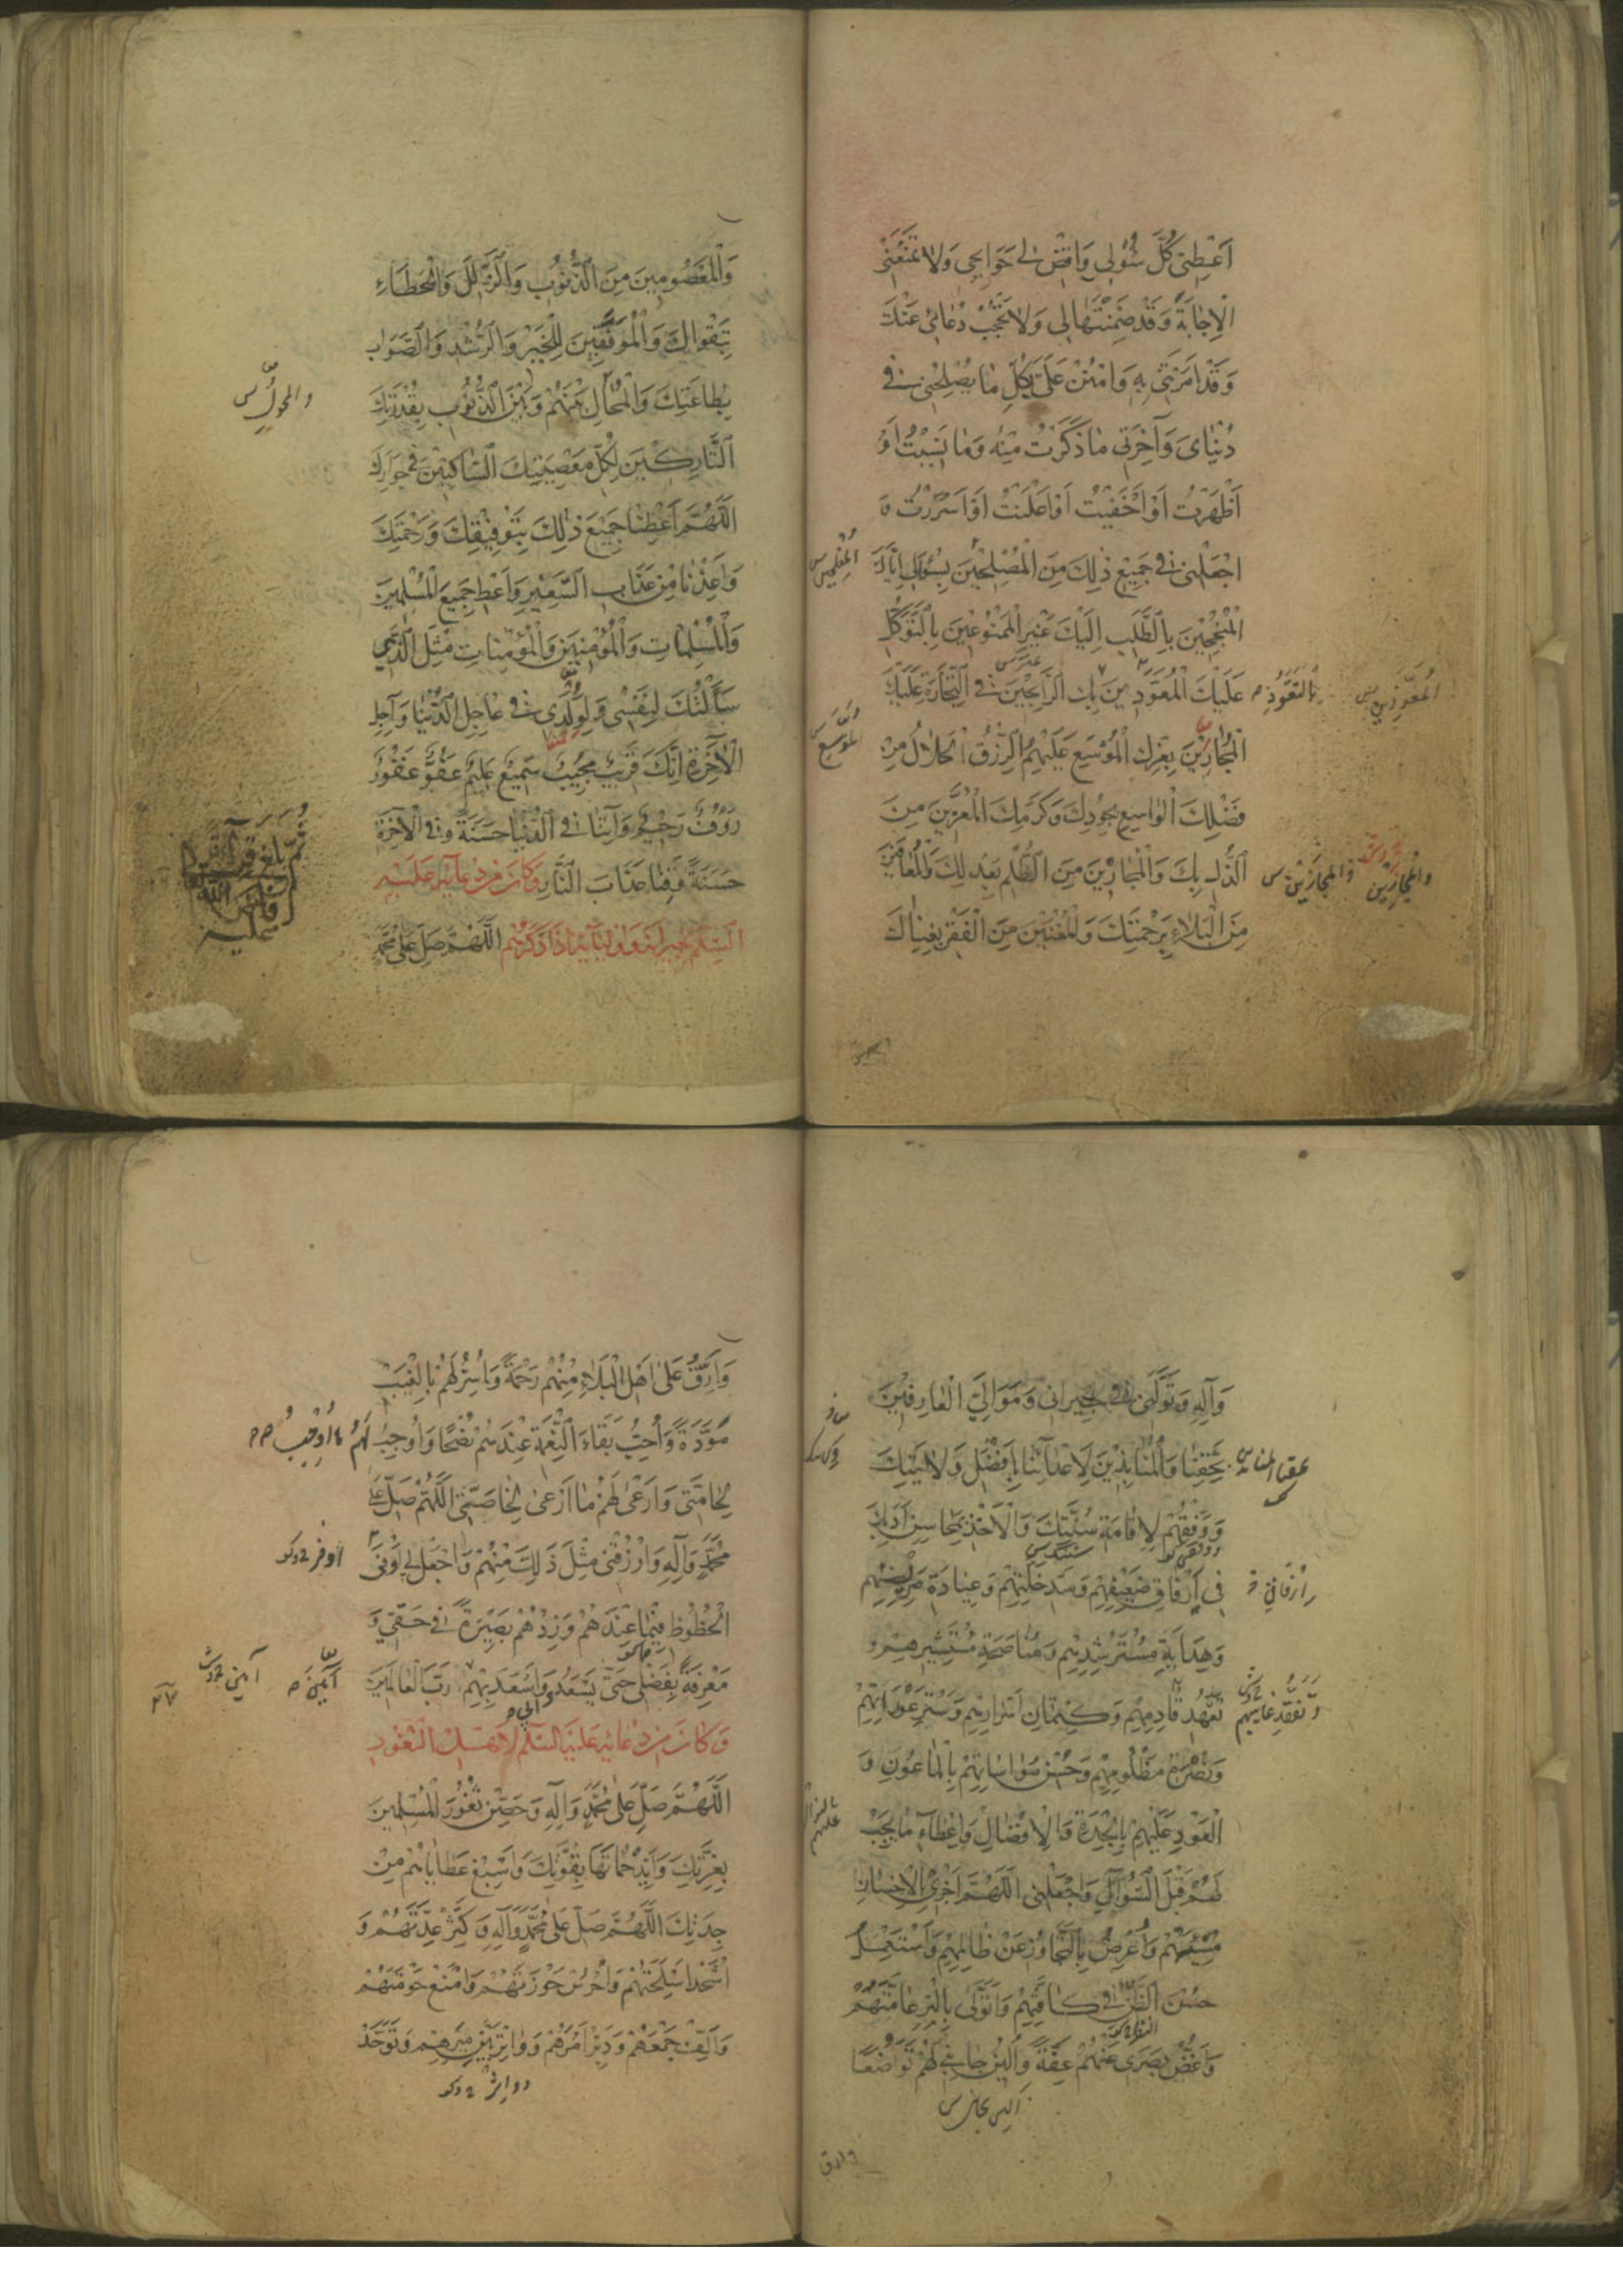 اَعْطِنِی كُلَّ سُؤْلِی وَاقْضِ لِی حَوَایِجِی وَلَا تَمْنَعْنِی
الْاِجَابَةَ وَقَدْ ضَمِنْتَهَا لِی وَلَا تَحْجُبْ دُعَائِی عَنْكَ
وَقَدْ اَمَرْتَنِی بِهِ وَامْنُنْ عَلَیَّ بِكُلِّ مَا یُصْلِحُنِی فِی
دُنْیَایَ وَآخِرَتِی مَا ذَكَرْتُ مِنْهُ وَمَا نَسِیْتُ اَوْ
اَظْهَرْتُ اَوْ اَخْفَیْتُ اَوْ اَعْلَنْتُ اَوْ اَسْرَرْتُ وَ
اجْعَلْنِی فِی جَمِیْعِ ذٰلِكَ مِنَ الْمُصْلِحِیْنَ بِسُؤَالِی اِیَّاكَ
الْمُنْجِحِیْنَ بِالطَّلَبِ اِلَیْكَ غَیْرِ الْمَمْنُوْعِیْنَ بِالتَّوَكُّلِ
عَلَیْكَ الْمُعَوَّدِیْنَ بِكَ الرَّابِحِیْنَ فِی التِّجَارَةِ عَلَیْكَ
بِالتَّعَوُّذِ
الْمُعَوَّذِیْنَ س
الْمُجَارِیْنَ بِعِزِّكَ الْمُوْسَعِ عَلَیْهِمُ الرِّزْقُ الْحَلَالُ مِنْ
الْمُوَسَّعِ س
فَضْلِكَ الْوَاسِعِ بِجُوْدِكَ وَكَرَمِكَ الْمُعَزِّیْنَ مِنَ
الذُّلِّ بِكَ وَالْمُجَارِیْنَ مِنَ الظُّلْمِ بِعَدْلِكَ وَالْمُعَافَیْنَ
وَالْمُجَازَیْنَ س
وَالْمُجَارِیْنَ
مِنَ الْبَلَاءِ بِرَحْمَتِكَ وَالْمُغْنَیْنَ مِنَ الْفَقْرِ بِغِنَاكَ
وَالْمَعْصُوْمِیْنَ مِنَ الذُّنُوْبِ وَالزَّلَلِ وَالْخَطَاءِ
بِتَقْوَاكَ وَالْمُوَفَّقِیْنَ لِلْخَیْرِ وَالرُّشْدِ وَالصَّوَابِ
بِطَاعَتِكَ وَالْمُحَالِ بَیْنَهُمْ وَبَیْنَ الذُّنُوْبِ بِقُدْرَتِكَ
وَالْمُحَوَّلِ س
التَّارِكِیْنَ لِكُلِّ مَعْصِیَتِكَ السَّاكِنِیْنَ فِی جِوَارِكَ
اَللّٰهُمَّ اَعْطِنَا جَمِیْعَ ذٰلِكَ بِتَوْفِیْقِكَ وَرَحْمَتِكَ
وَاَعِذْنَا مِنْ عَذَابِ السَّعِیْرِ وَاَعْطِ جَمِیْعَ الْمُسْلِمِیْنَ
وَالْمُسْلِمَاتِ وَالْمُؤْمِنِیْنَ وَالْمُؤْمِنَاتِ مِثْلَ الَّذِی
سَاَلْتُكَ لِنَفْسِی وَلِوُلْدِی فِی عَاجِلِ الدُّنْیَا وَآجِلِ
الْآخِرَةِ اِنَّكَ قَرِیْبٌ مُجِیْبٌ سَمِیْعٌ عَلِیْمٌ عَفُوٌّ غَفُوْرٌ
رَؤُفٌ رَحِیْمٌ وَآتِنَا فِی الدُّنْیَا حَسَنَةً وَفِی الْآخِرَةِ
حَسَنَةً وَقِنَا عَذَابَ النَّارِ وَكَانَ مِنْ دُعَائِهِ عَلَیْهِ
السَّلَمُ لِجِیْرَانِهِ وَاَوْلِیَائِهِ اِذَا ذَكَرَهُمْ اَللّٰهُمَّ صَلِّ عَلٰی مُحَمَّدٍ
وَآلِهِ وَتَوَلَّنِی فِی جِیْرَانِی وَمَوَالِیَّ الْعَارِفِیْنَ
بِحَقِّنَا وَالْمُنَابِذِیْنَ لِاَعْدَائِنَا بِاَفْضَلِ وَلَایَتِكَ
وَوَفِّقْهُمْ لِاِقَامَةِ سُنَّتِكَ وَالْاَخْذِ بِمَحَاسِنِ اَدَبِكَ
فِی اِرْفَاقِ ضَعِیْفِهِمْ وَسَدِّ خَلَّتِهِمْ وَعِیَادَةِ مَرِیْضِهِمْ
وَهِدَایَةِ مُسْتَرْشِدِهِمْ وَمُنَاصَحَةِ مُسْتَشِیْرِهِمْ وَ
تَعَهُّدِ قَادِمِهِمْ وَكِتْمَانِ اَسْرَارِهِمْ وَسَتْرِ عَوْرَاتِهِمْ
وَتَفَقُّدِ غَایِبِهِمْ
وَنُصْرَةِ مَظْلُوْمِهِمْ وَحُسْنِ مُوَاسَاتِهِمْ بِالْمَاعُوْنِ وَ
الْعَوْدِ عَلَیْهِمْ بِالْجِدَةِ وَالْاِفْضَالِ وَاِعْطَاءِ مَا یَجِبُ
لَهُمْ قَبْلَ السُّؤَالِ وَاجْعَلْنِی اَللّٰهُمَّ اَجْزِی بِالْاِحْسَانِ
مُسِیْئَهُمْ وَاُعْرِضُ بِالتَّجَاوُزِ عَنْ ظَالِمِهِمْ وَاَسْتَعْمِلُ
حُسْنَ الظَّنِّ فِی كَافَّتِهِمْ وَاَتَوَلّٰی بِالْبِرِّ عَامَّتَهُمْ
وَاَغُضُّ بَصَرِی عَنْهُمْ عِفَّةً وَاُلِیْنُ جَانِبِی لَهُمْ تَوَاضُعًا
وارق
وَاَرِقُّ عَلٰی اَهْلِ الْبَلَاءِ مِنْهُمْ رَحْمَةً وَاُسِرُّ لَهُمْ بِالْغَیْبِ
مَوَدَّةً وَاُحِبُّ بَقَاءَ النِّعْمَةِ عِنْدَهُمْ نُصْحًا وَاُوْجِبُ لَهُمْ مَا اُوْجِبُ
لِحَامَّتِی وَاَرْعٰی لَهُمْ مَا اَرْعٰی لِخَاصَّتِی اَللّٰهُمَّ صَلِّ عَلٰی
مُحَمَّدٍ وَآلِهِ وَارْزُقْنِی مِثْلَ ذٰلِكَ مِنْهُمْ وَاجْعَلْ لِی اَوْفٰی
اوفر
الْحُظُوْظِ فِیْمَا عِنْدَهُمْ وَزِدْهُمْ بَصِیْرَةً فِی حَقِّی وَ
مَعْرِفَةً بِفَضْلِی حَتّٰی یَسْعَدُوْا وَاَسْعَدَ بِهِمْ رَبَّ الْعَالَمِیْنَ
آمِّیْنَ
آمین
وَكَانَ مِنْ دُعَائِهِ عَلَیْهِ السَّلَمُ لِاَهْلِ الثُّغُوْرِ
اَللّٰهُمَّ صَلِّ عَلٰی مُحَمَّدٍ وَآلِهِ وَحَصِّنْ ثُغُوْرَ الْمُسْلِمِیْنَ
بِعِزَّتِكَ وَاَیِّدْ حُمَاتَهَا بِقُوَّتِكَ وَاَسْبِغْ عَطَایَاهُمْ مِنْ
جِدَتِكَ اَللّٰهُمَّ صَلِّ عَلٰی مُحَمَّدٍ وَآلِهِ وَكَثِّرْ عِدَّتَهُمْ وَ
اشْحَذْ اَسْلِحَتَهُمْ وَاحْرُسْ حَوْزَتَهُمْ وَامْنَعْ حَوْمَتَهُمْ
وَاَلِّفْ جَمْعَهُمْ وَدَبِّرْ اَمْرَهُمْ وَوَاتِرْ بَیْنَ مِیَرِهِمْ وَتَوَحَّدْ